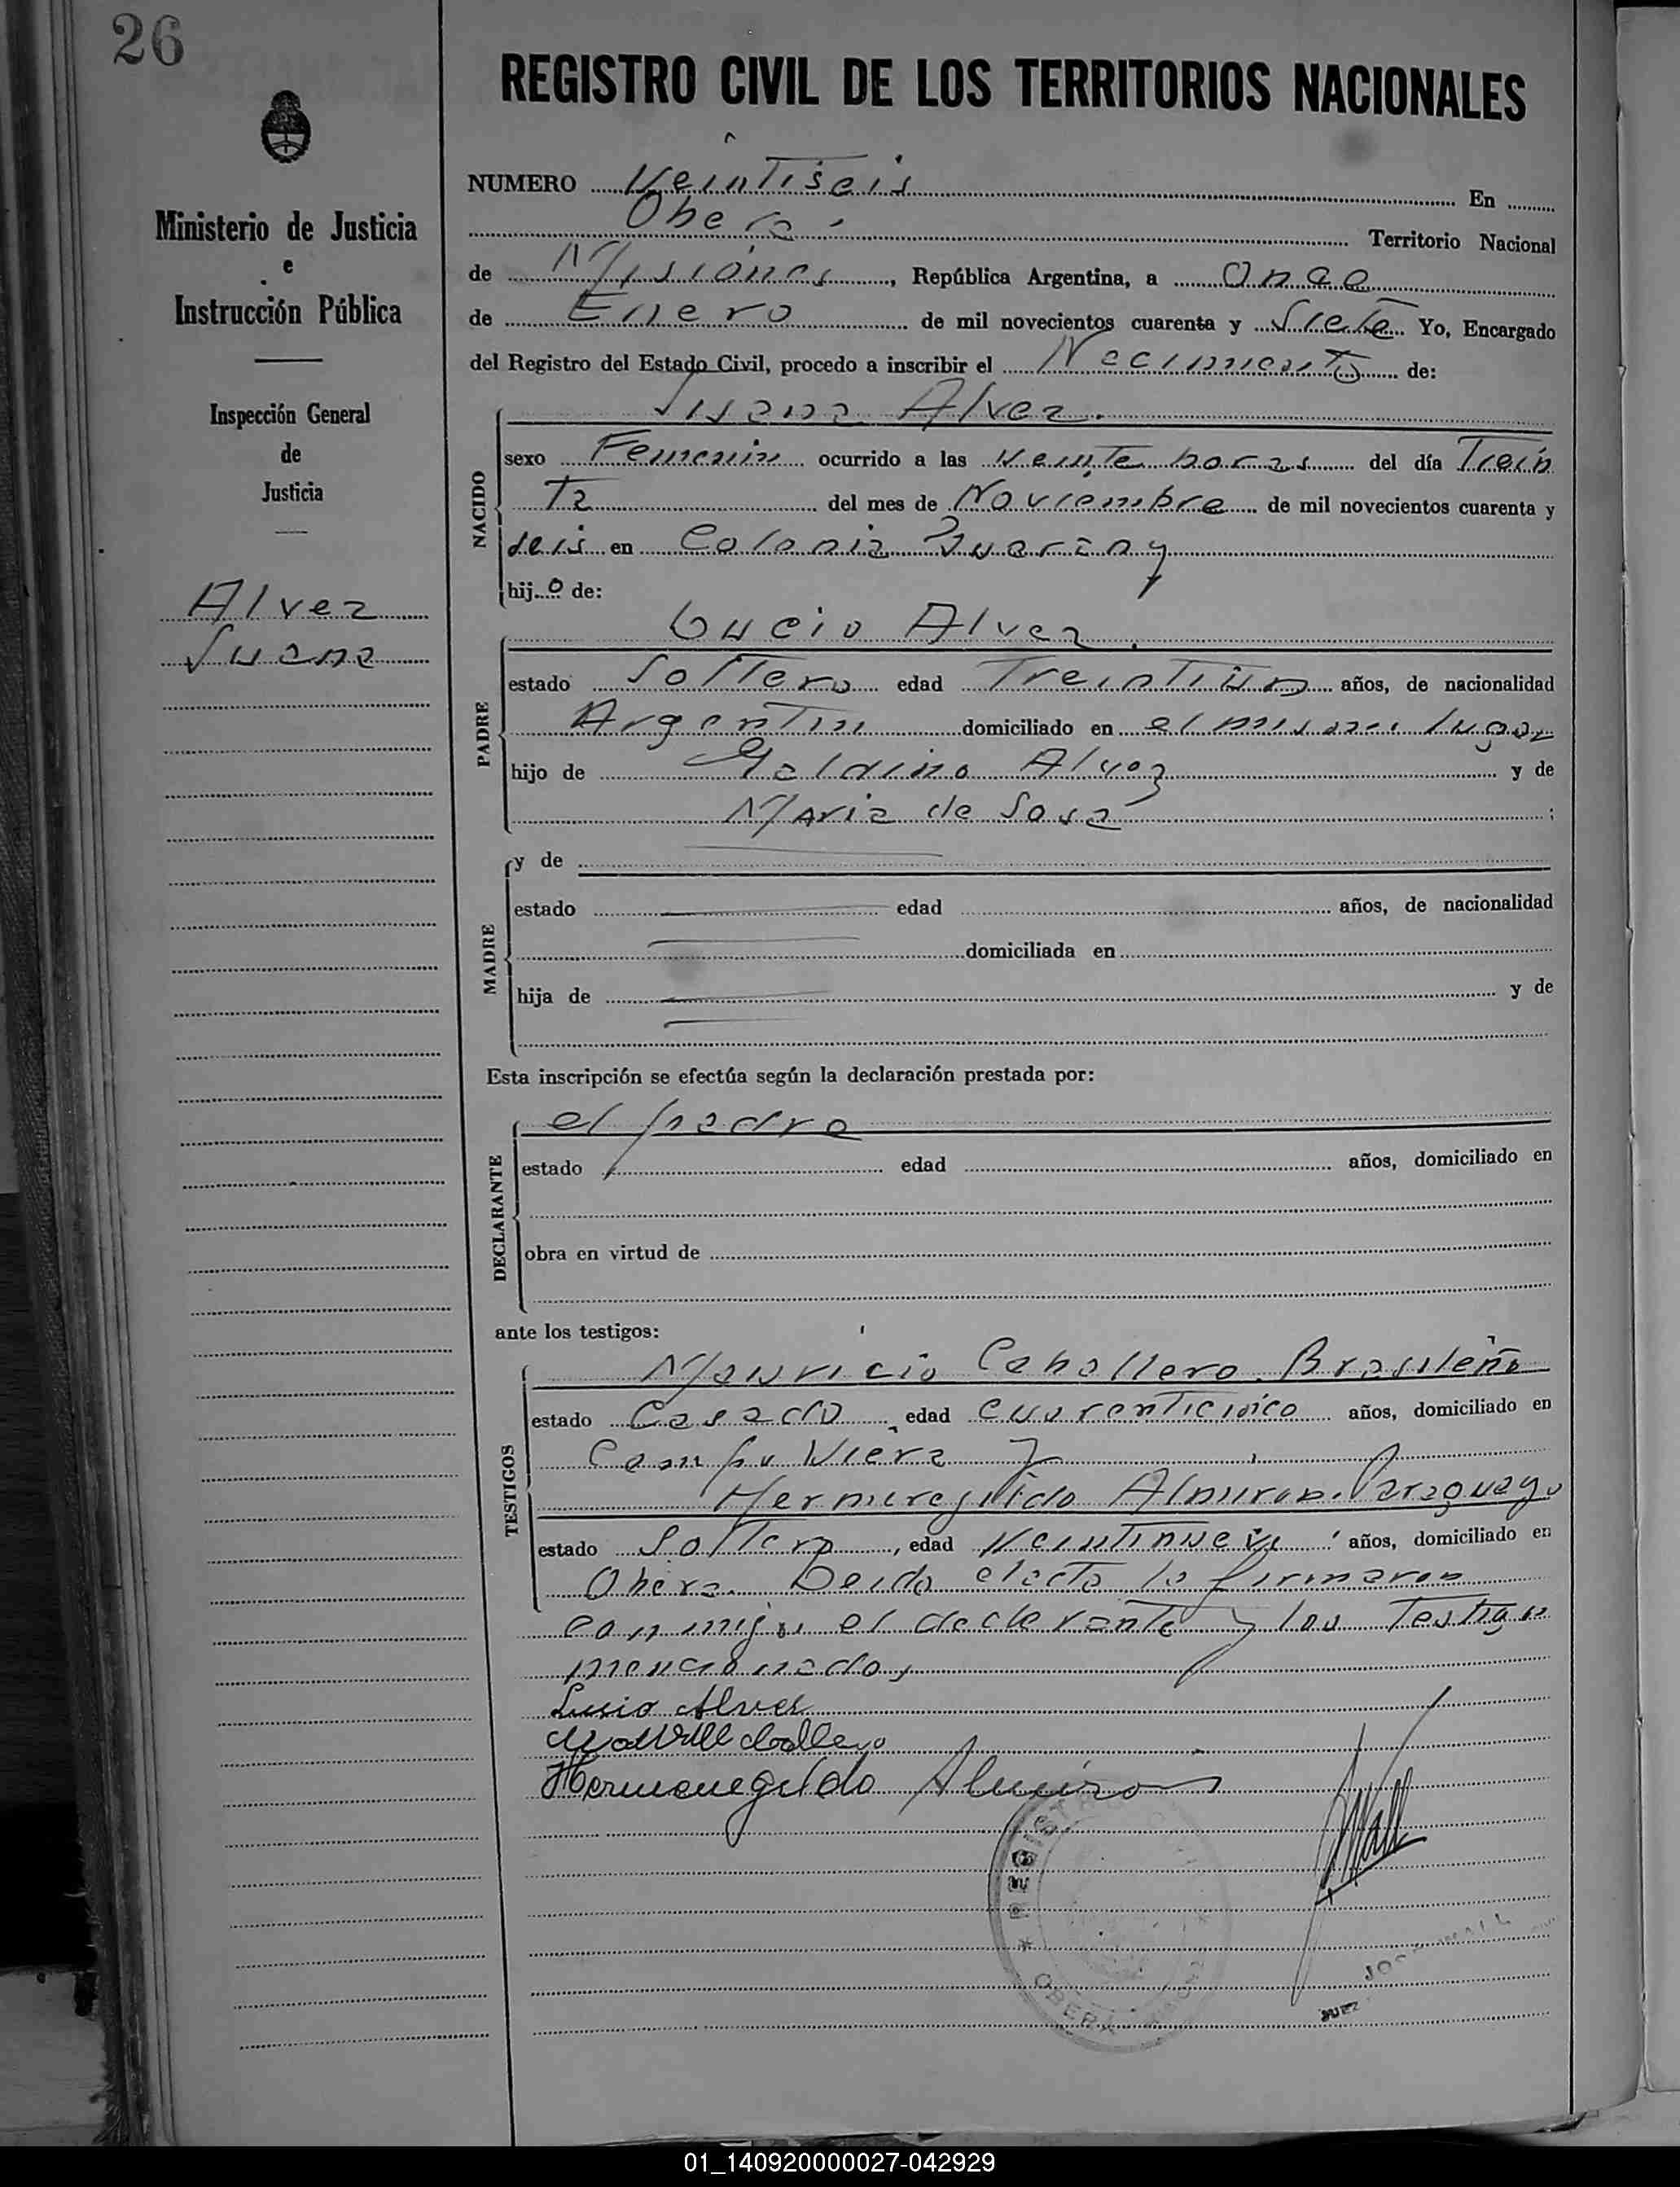 26
REGISTRO CIVIL DE LOS TERRITORIOS NACIONALES
Ministerio de Justicia
e
Instrucción Pública
Inspección General
de
Justicia
Alvez
Susana
NUMERO Veintiseis En
Oberá Territorio Nacional
de Misiones, República Argentina, a Once
de Enero de mil novecientos cuarenta y Siete Yo, Encargado
del Registro del Estado Civil, procedo a inscribir el Nacimiento de:
NACIDO
Susana Alvez.
sexo Femenin ocurrido a las veinte horas del día Trein
Ta del mes de Noviembre de mil novecientos cuarenta y
seis en Colonia Guarany
hijo de:
PADRE
Lucio Alvez.
estado Soltero edad Treintiun años, de nacionalidad
Argentin domiciliado en el mismo lugar
hijo de Galdino Alvez y de
Maria de Sosa ;
MADRE
y de
estado edad años, de nacionalidad
domiciliada en
hija de y de
Esta inscripción se efectúa según la declaración prestada por:
DECLARANTE
el padre
estado edad años, domiciliado en
obra en virtud de
ante los testigos:
TESTIGOS
Mauricio Caballero. Brasileño
estado Casado edad cuarenticinco años, domiciliado en
Campo Viera y
Hermenegildo Almiron. Paraguayo
estado Soltero, edad Veintinueve años, domiciliado en
Obera. Leida el acta la firmaron
conmigo el declarante y los Testigos
mencionados
Lusio Alves
Caballero
Hermenegildo Almiron
REGISTRO
OBERA
JUEZ
01_140920000027-042929